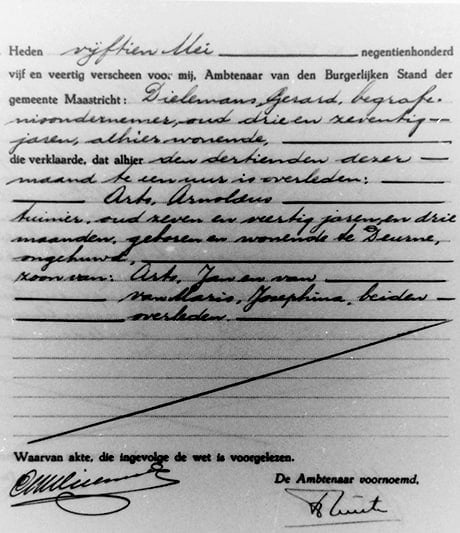 Heden vijftien Mei negentienhonderd
vijf en veertig verscheen voor mij, Ambtenaar van den Burgerlijken Stand der
gemeente Maastricht: Dielemans, Gerard, begrafe-
nisondernemer, oud drie en zeventig
jaren, alhier wonende,
die verklaarde, dat alhier den dertienden dezer
maand te een uur is overleden:
Arts, Arnoldus
tuinier, oud zeven en veertig jaren, en drie
maanden, geboren en wonende te Deurne,
ongehuwd,
zoon van: Arts, Jan en van
van Maris, Josephina, beiden
overleden.
Waarvan akte, die ingevolge de wet is voorgelezen.
De Ambtenaar voornoemd,